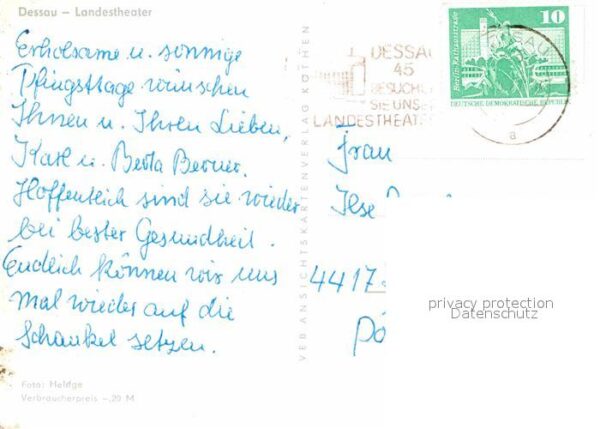 Dessau – Landestheater
Erholsame u. sonnige
Pfingsttage wünschen
Ihnen u. Ihren Lieben,
Karl u. Berta Berner.
Hoffentlich sind sie wieder
bei bester Gesundheit.
Endlich können wir uns
mal wieder auf die
Schaukel setzen.
Foto:
Verbraucherpreis –,20 M
VEB ANSICHTSKARTENVERLAG KÖTHEN
DESSAU
45
BESUCH
SIE UNSE
LANDESTHEAT
10
Berlin, Rathausstraße
DEUTSCHE DEMOKRATISCHE REPUBLIK
a
Frau
Ilse
4417
privacy protection
Datenschutz